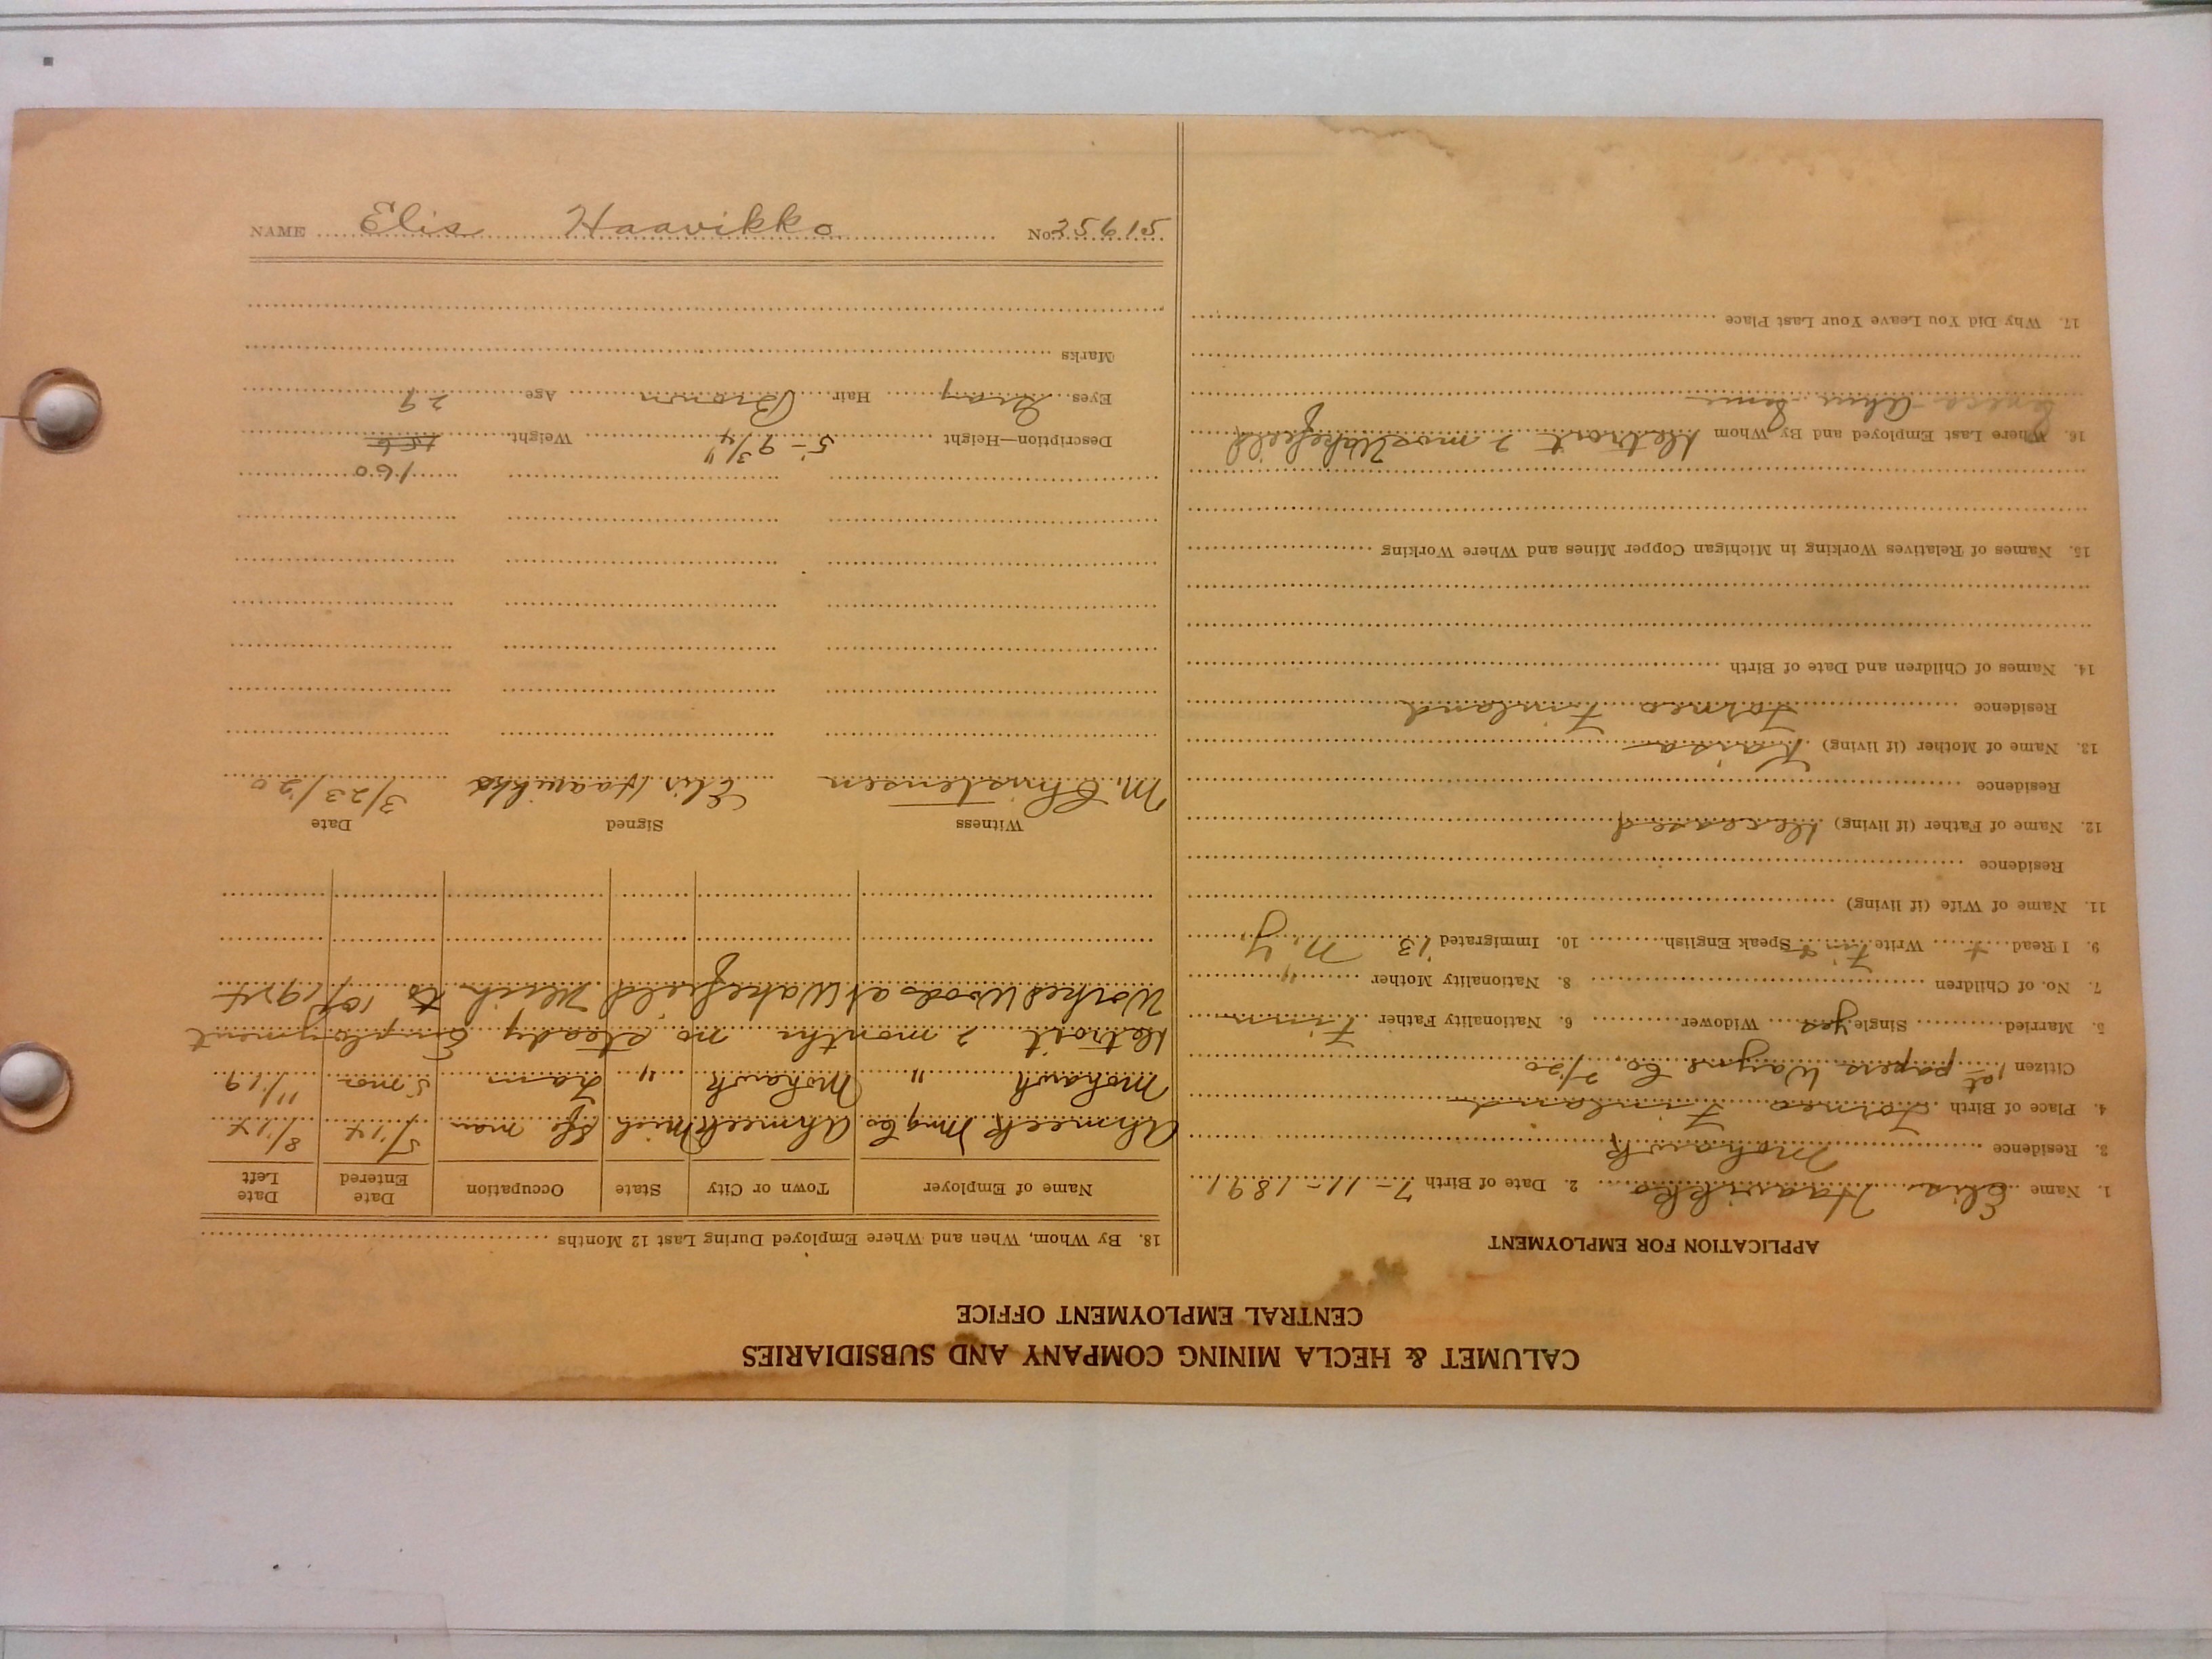 CALUMET & HECLA MINING COMPANY AND SUBSIDIARIES
CENTRAL EMPLOYMENT OFFICE
APPLICATION FOR EMPLOYMENT
1. Name Elis Haavikko 2. Date of Birth 7-11-1891
3. Residence Mohawk
4. Place of Birth Tornea Finland
Citizen 1st papers Wayne Co, 2/20
5. Married Single yes Widower 6. Nationality Father Finn
7. No. of Children 8. Nationality Mother "
9. I Read + Write Fin + Speak English 10. Immigrated '13 N. Y.
11. Name of Wife (if living)
Residence
12. Name of Father (if living) deceased
Residence
13. Name of Mother (if living) Kaisa
Residence Tornea Finland
14. Names of Children and Date of Birth
15. Names of Relatives Working in Michigan Copper Mines and Where Working
16. Where Last Employed and By Whom Detroit 2 mos Wakefield
17. Why Did You Leave Your Last Place
18. By Whom, When and Where Employed During Last 12 Months
Name of Employer Town or City State Occupation Date Entered Date Left
Ahmeek Mng Co. Ahmeek Mich Sfc man 5/17 8/17
Mohawk " Mohawk " Tram 5 mos 11/19
Detroit 2 months no steady Employment
Worked Woods at Wakefield Mich to
Witness Signed Date
M. Christensen Elis Haavikko 3/23/20
160
Description—Height 5'-9 3/4" Weight 156
Eyes Gray Hair Brown Age 29
Marks
NAME Elis Haavikko No. 25615